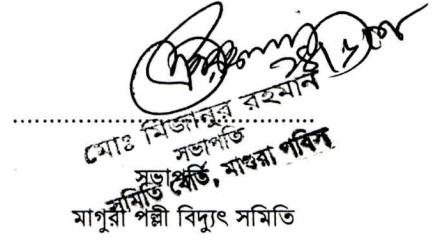 মোঃ মিজানুর রহমান
সভাপতি
সভাপতি
সমিতি বোর্ড, মাগুরা পবিস
মাগুরা পল্লী বিদ্যুৎ সমিতি